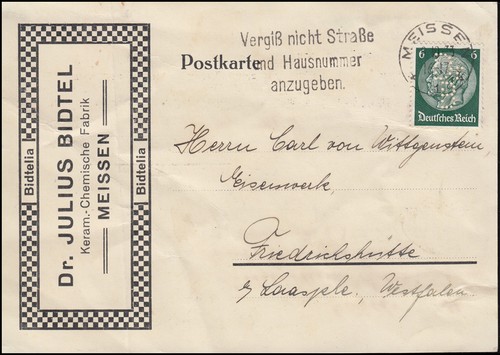 Dr. JULIUS BIDTEL
Keram.-Chemische Fabrik
MEISSEN
Bidtelia
Bidtelia
Postkarte
Vergiß nicht Straße
und Hausnummer
anzugeben.
MEISSE
6 6
Deutsches Reich
Herrn Carl von Wittgenstein
Eisenwerk,
Friedrichshütte
b/ Laasphe, Westfalen.